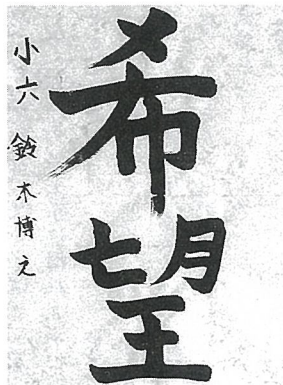 希望
小六 鈴木博之